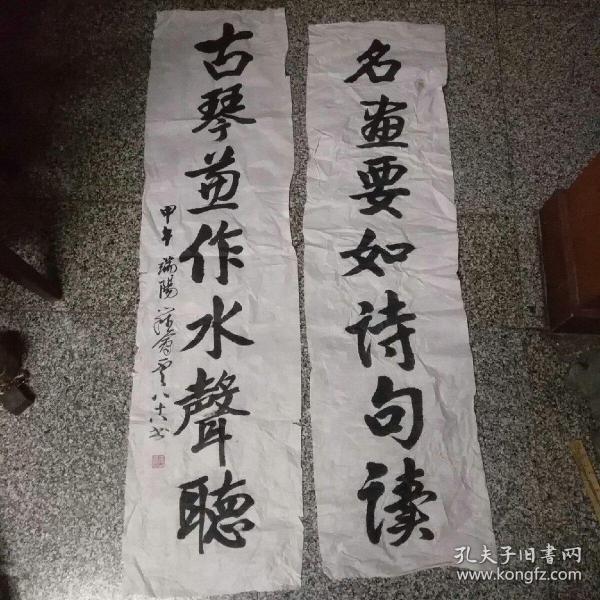 名畫要如诗句读
古琴兼作水聲聽
甲午 瑞陽
八十八书
孔夫子旧書网
www.kongfz.com